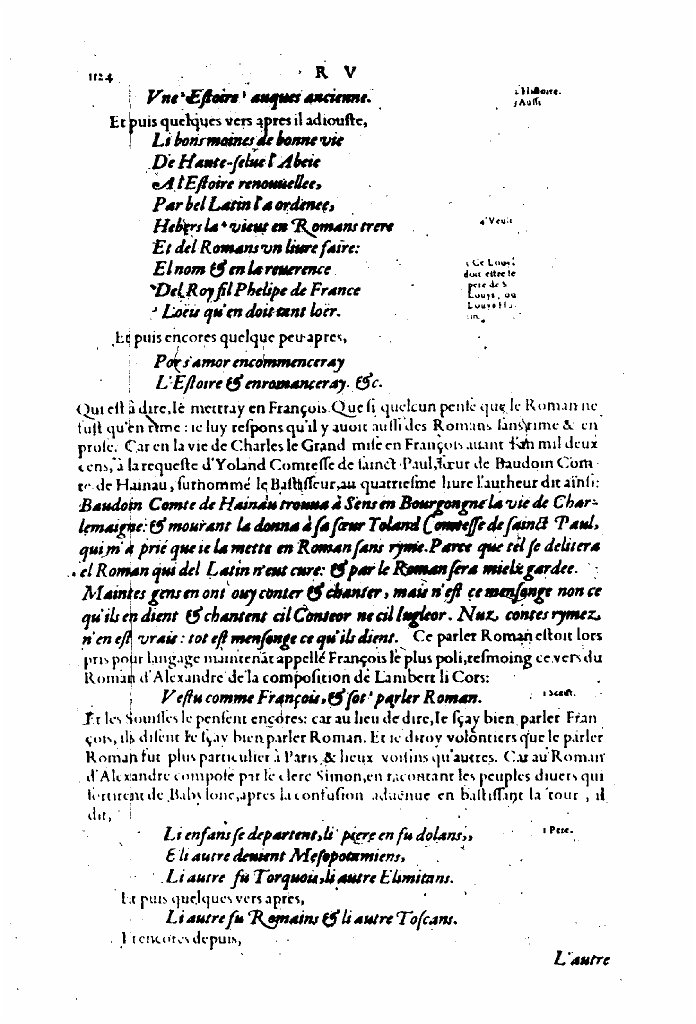 1124 R V
Vne Estoire auques ancienne.
1 Histoire.
3 Aussi
Et puis quelques vers apres il adiouste,
Li bons moines de bonne vie
De Haute-selue l'Abeie
A l'Estoire renouuellee,
Par bel Latin l'a ordenee,
Hebers la vieut en Romans trere
4 Veult
Et del Romans vn liure faire:
El nom & en la reuerence
Del Roy fil Phelipe de France
Loeis qu'en doit tant loer.
1 Ce Louys
doit estre le
pere de S.
Louys, ou
Louys Hu-
tin.
Et puis encores quelque peu apres,
Por s'amor encommenceray
L'Estoire & enromanceray. &c.
Qui est à dire, Ie mettray en François. Que si quelcun pense que le Roman ne
fust qu'en rime: ie luy respons qu'il y auoit aussi des Romans sans rime & en
prose. Car en la vie de Charles le Grand mise en François auant l'an mil deux
cens, à la requeste d'Yoland Comtesse de sainct Paul, sœur de Baudoin Com
te de Hainau, surnommé le Bastisseur, au quatriesme liure l'autheur dit ainsi:
Baudoin Comte de Hainau trouua à Sens en Bourgongne la vie de Char-
lemaigne: & mourant la donna à sa sœur Yoland Comtesse de sainct Paul,
qui m'a prié que ie la mette en Roman sans ryme. Parce que tel se delitera
el Roman qui del Latin n'eut cure: & par le Roman sera mielx gardee.
Maintes gens en ont ouy conter & chanter, mais n'est ce mensonge non ce
qu'ils en dient & chantent cil Conteor ne cil Iugleor. Nuz contes rymez
n'en est vrais: tot est mensonge ce qu'ils dient. Ce parler Roman estoit lors
pris pour langage maintenāt appellé François le plus poli, tesmoing ce vers du
Roman d'Alexandre de la composition de Lambert li Cors:
Vestu comme François, & sot parler Roman.
1 Sceut.
Et les Souisses le pensent encores: car au lieu de dire, Ie sçay bien parler Fran
çois, ils disent Ie sçay bien parler Roman. Et ie diroy volontiers que le parler
Roman fut plus particulier à Paris & lieux voisins qu'autres. Car au Roman
d'Alexandre compose par le clerc Simon, en racontant les peuples diuers qui
sortirent de Babylone, apres la confusion aduenue en bastissant la tour, il
dit,
Li enfans se departent, li piere en fu dolans,
1 Pere.
E li autre deuient Mesopotamiens,
Li autre fu Torquois, li autre Elimitans.
Et puis quelques vers apres,
Li autre fu Romains & li autre Toscans.
Et encores depuis,
L'autre